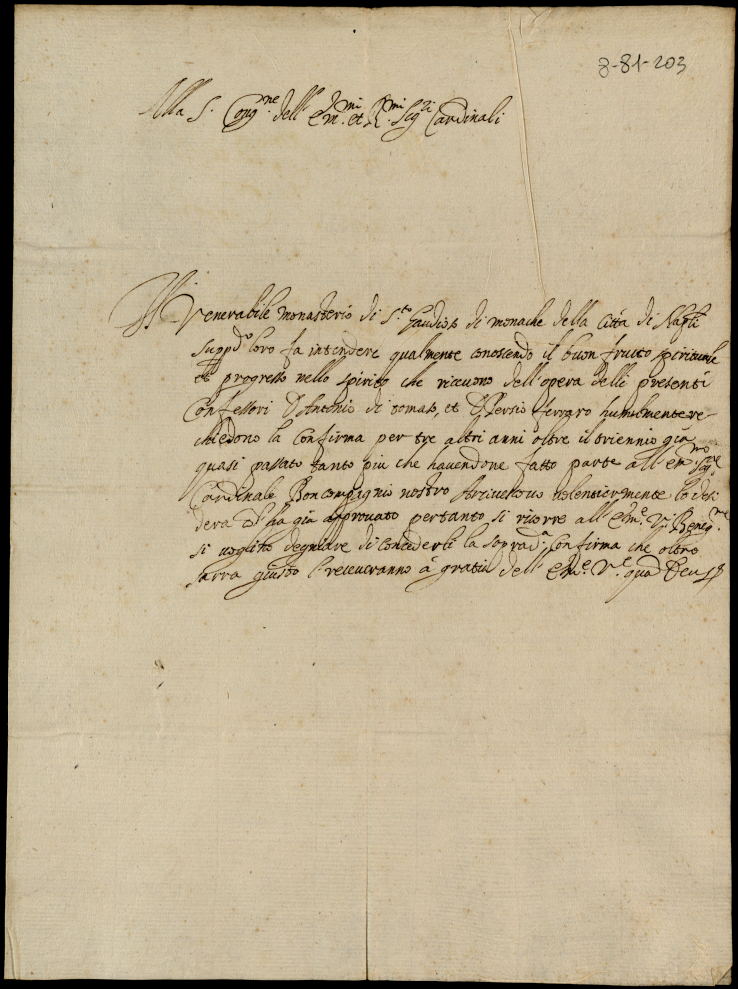 8-81-203
Alla S. Cong.ne dell' Em.mi et R.mi Sig.ri Cardinali
Il Venerabile monasterio di S.to Gaudioso di monache della Città di Nap.li
supp.do loro fa intendere qualmente conoscendo il buon frutto spirituale
et progresso nello spirito che riceuono dell'opera delli presenti
Confessori D. Antonio di tomaso, et D. Persio ferraro humilmente re-
chiedono la Confirma per tre altri anni oltre il triennio già
quasi passato tanto più che hauendone fatto parte all'em.mo Sig.re
Cardinale Boncompagnio nostro Arciuescouo uolentiermente lo desi
dera et ha già approuato pertanto si ricorre all' Em.e V.e Benig.me
si uoglino degniare di concederli la soprad.a Confirma che oltre
sarra giusto l'receueranno à gratia dell' Em.e V.e quam Deus